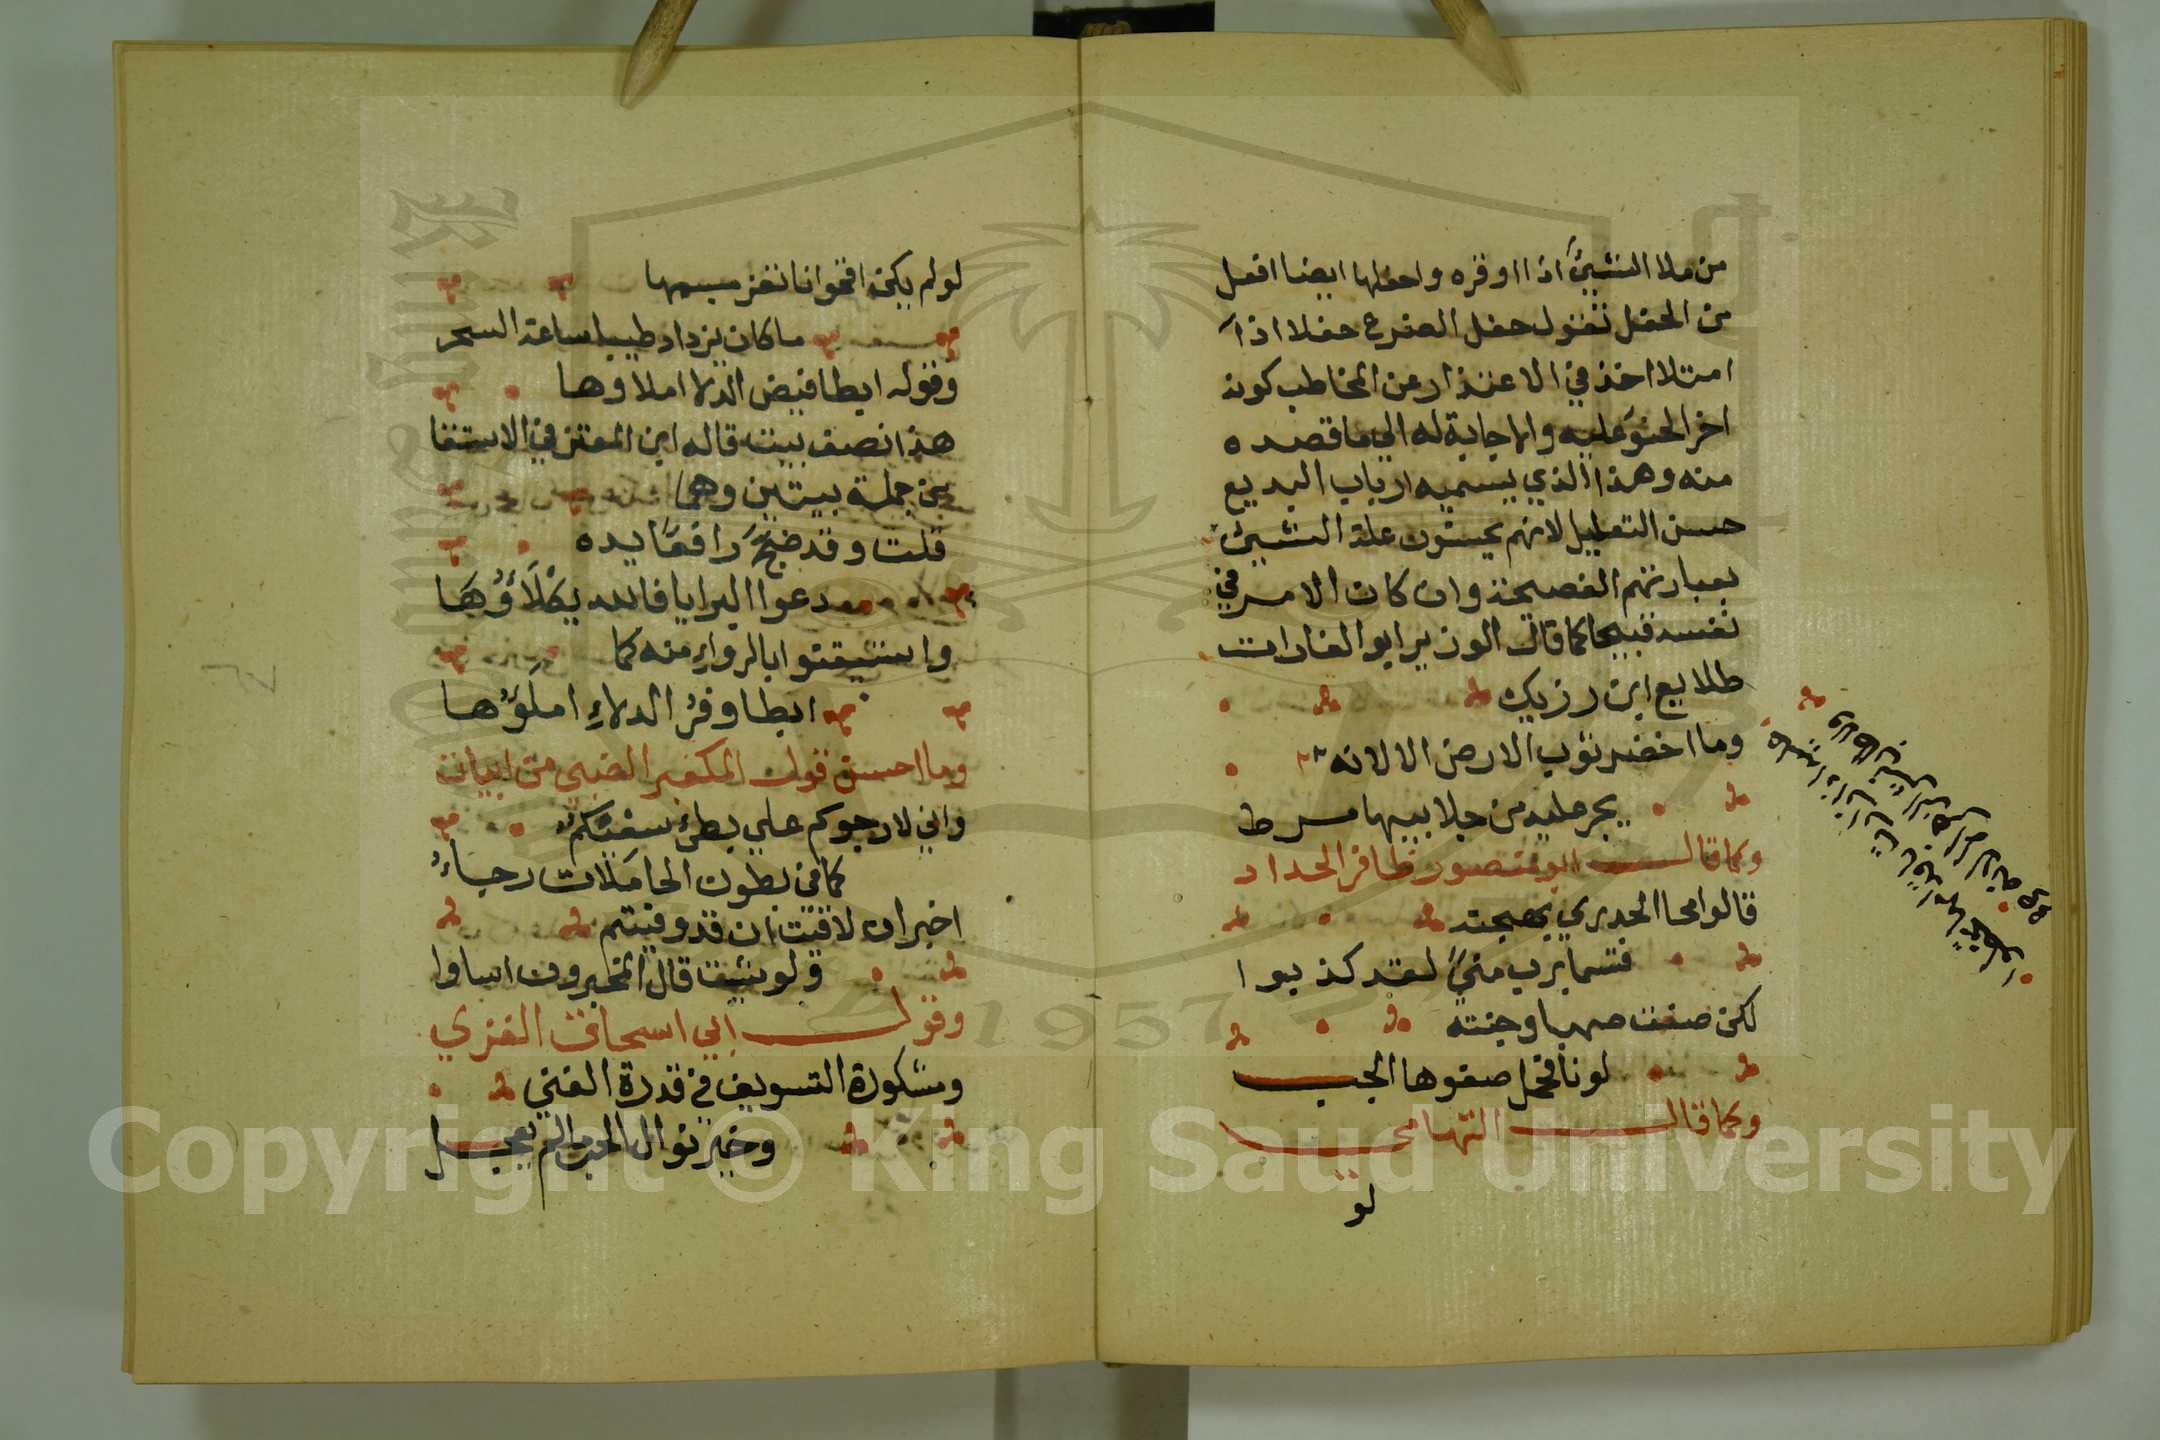 من ملا الشيئ اذا اوقره واحفلها ايضا افعل
من الحفل تقول حفل الضرع حفلا اذا
امتلا اخذ في الاعتذار عن المخاطب كونه
اخر الحنو عليه والاجابة له الي ما قصده
منه وهذا الذي يسميه ارباب البديع
حسن التعليل لانهم يحسنون علة الشيئ
بعبارتهم الفصيحة وان كان الامر في
نفسه قبيحا كما قال الوزير ابو الغارات
طلايع ابن رزيك
وما اخضر ثوب الارض الا لانه
يجر عليه من جلابيبها مرط
وكما قال ابو منصور ظافر الحداد
قالوا محا الجدري بهجته
قسما برب مني لقد كذبوا
لكن صفت صهبا وجنته
لونا فجمل صفوها الحبب
وكما قال التهامي
لو
لو لم يكن اقحوانا ثغر مبسمها
ما كان يزداد طيبا ساعة السحر
وقوله ابطا فيض الدلاء املاوها
هذا نصف بيت قاله ابن المعتز في الاستسقا
من جملة بيتين وهما
قلت وقد ضج رافعا يده
دعوا البرايا فالله يكلاؤها
واستيقنوا بالرواء منه كما
ابطا وفر الدلاء املؤها
وما احسن قول المكعبر الضبي من ابيات
واني لارجوكم علي بطئ سعيكم
كما في بطون الحاملات رجاء
اخبر ان لاقيت ان قد وفيتم
ولو شيت قال المخبرون اساوا
وقول ابي اسحاق الغزي
ومشكورة التسويف في قدرة الغني
وخير نوال الحب ما لم يعجل
Copyright © King Saud University
1957